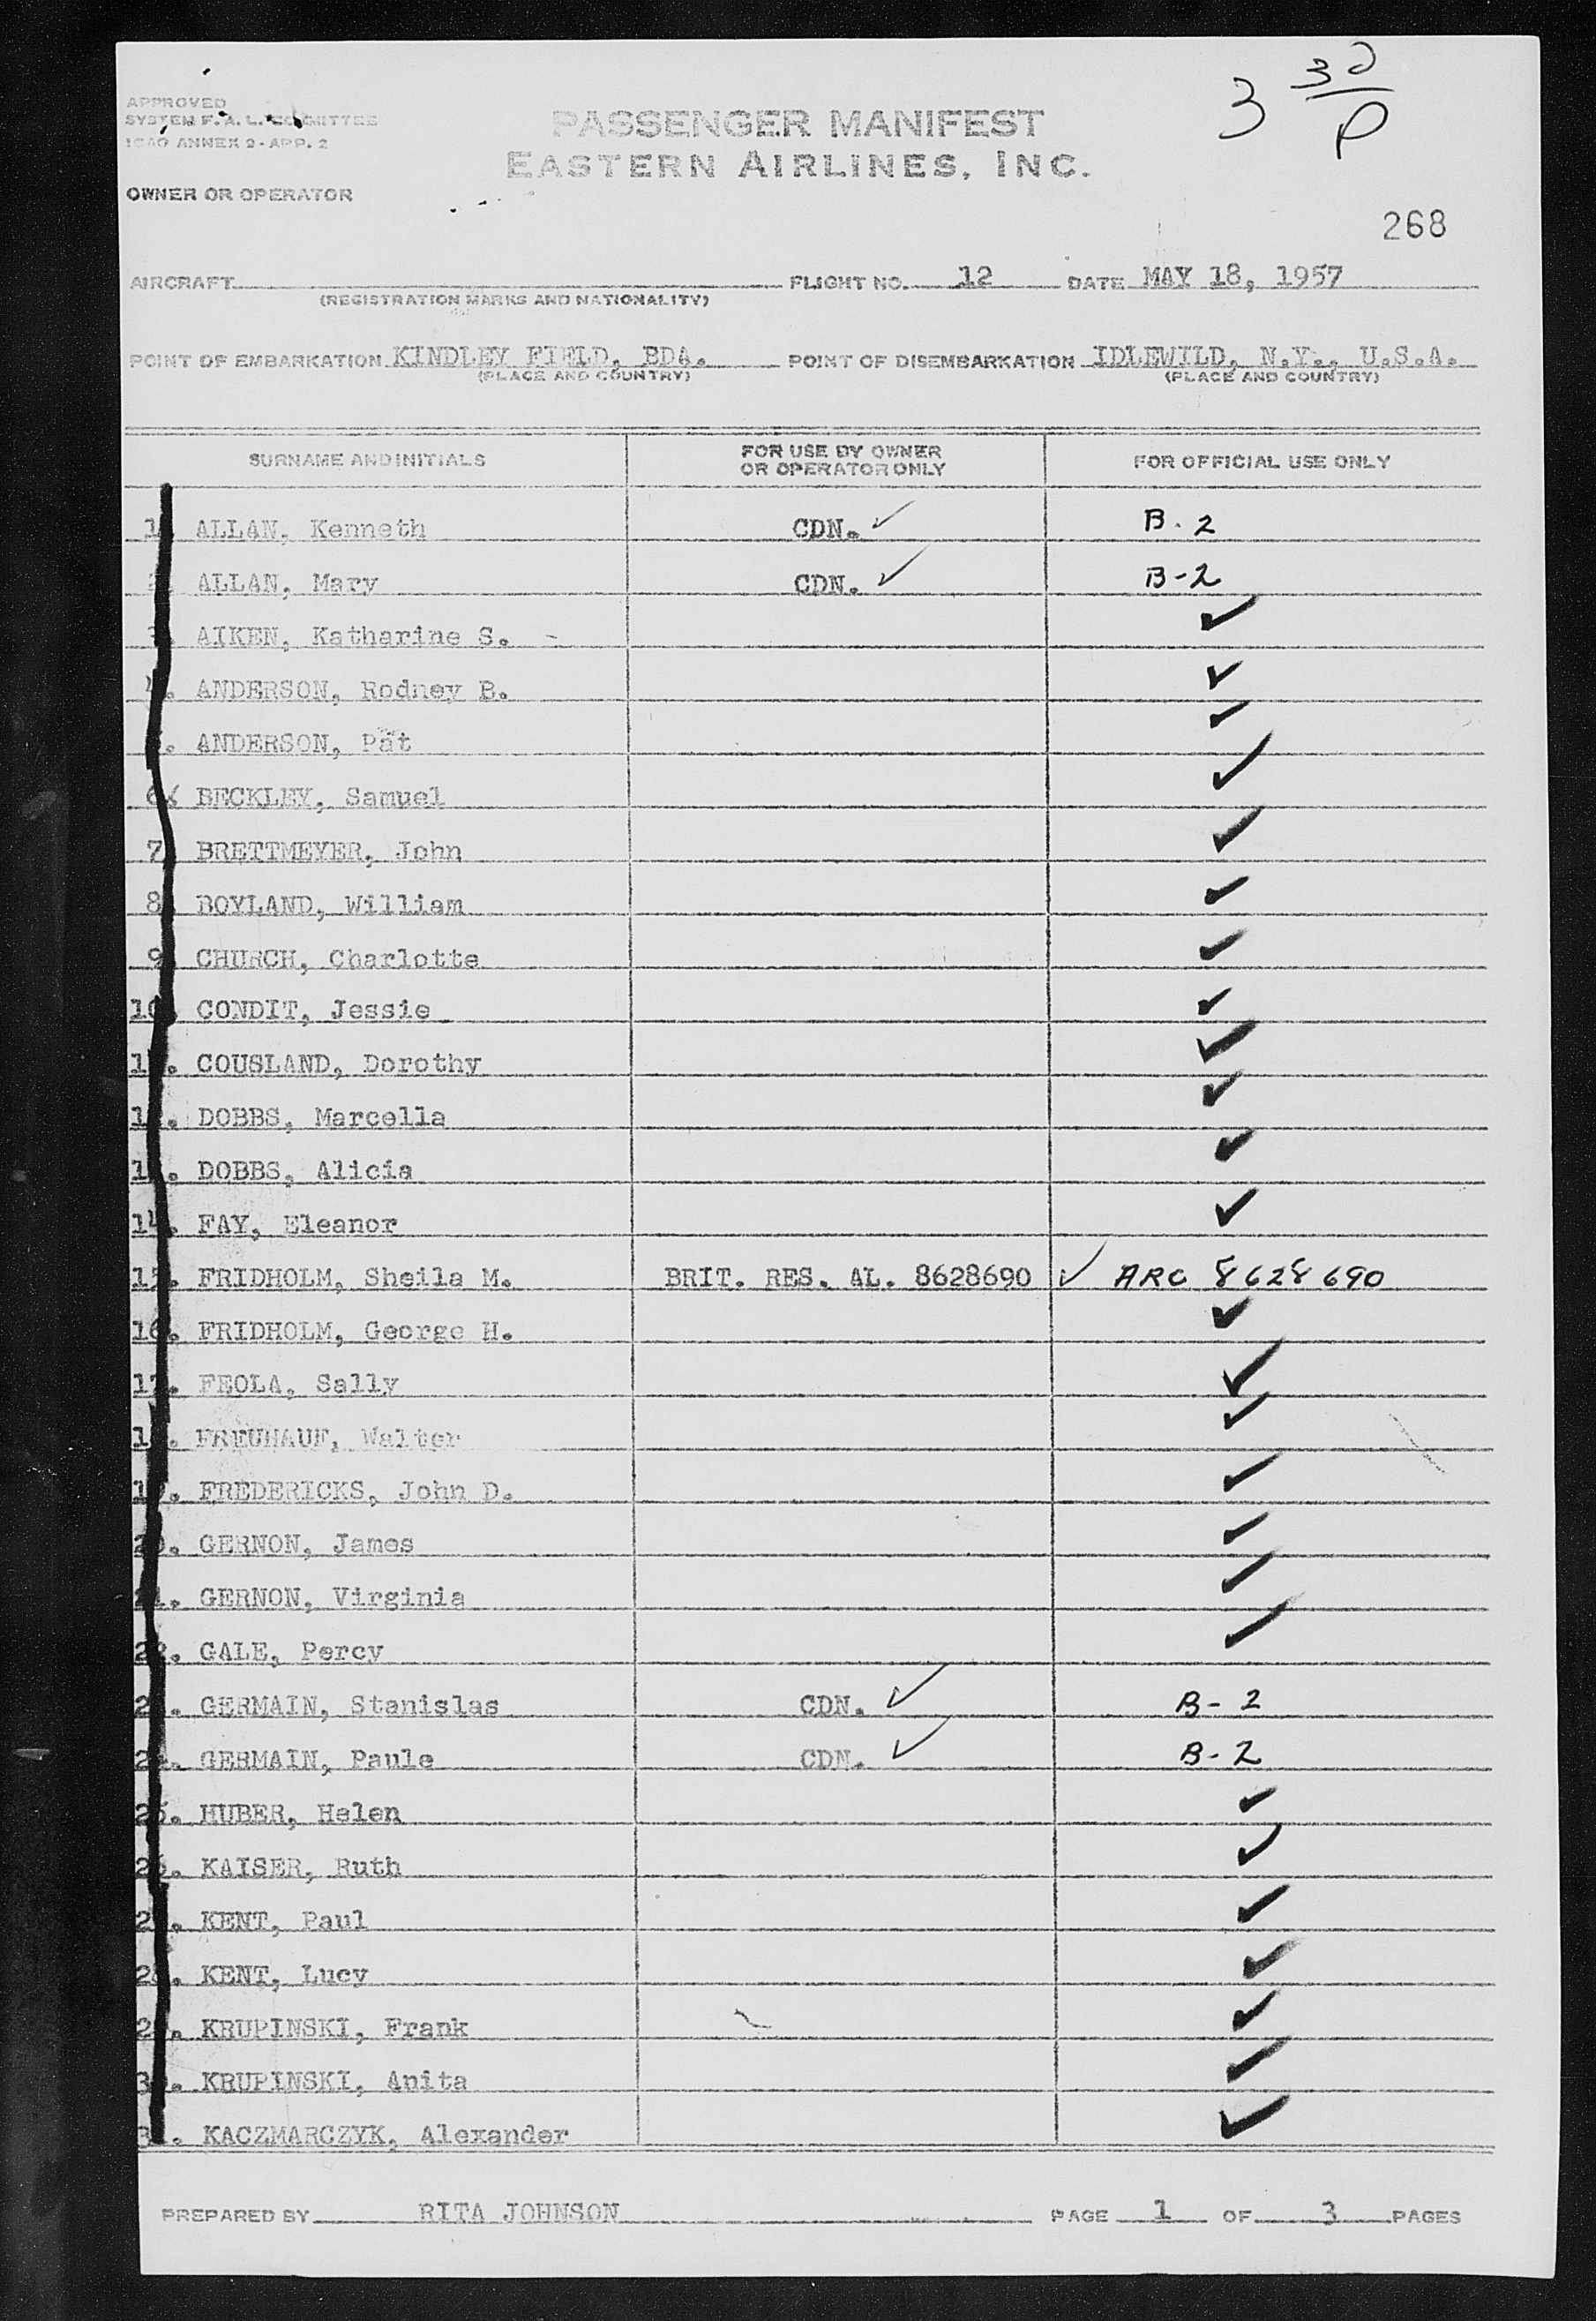 APPROVED
SYSTEM F. A. L. COMMITTEE
ICAO ANNEX 9 - APP. 2
3 30/P
PASSENGER MANIFEST
EASTERN AIRLINES, INC.
OWNER OR OPERATOR
268
AIRCRAFT FLIGHT NO. 12 DATE MAY 18, 1957
(REGISTRATION MARKS AND NATIONALITY)
POINT OF EMBARKATION KINDLEY FIELD, BDA. POINT OF DISEMBARKATION IDLEWILD, N.Y., U.S.A.
(PLACE AND COUNTRY) (PLACE AND COUNTRY)
SURNAME AND INITIALS FOR USE BY OWNER OR OPERATOR ONLY FOR OFFICIAL USE ONLY
1. ALLAN, Kenneth CDN. ✓ B-2
2. ALLAN, Mary CDN. ✓ B-2
3. AIKEN, Katharine S. - ✓
4. ANDERSON, Rodney B. ✓
5. ANDERSON, Pat ✓
6. BECKLEY, Samuel ✓
7. BRETTMEYER, John ✓
8. BOYLAND, William ✓
9. CHURCH, Charlotte ✓
10. CONDIT, Jessie ✓
11. COUSLAND, Dorothy ✓
12. DOBBS, Marcella ✓
13. DOBBS, Alicia ✓
14. FAY, Eleanor ✓
15. FRIDHOLM, Sheila M. BRIT. RES. AL. 8628690 ✓ ARC 8628690
16. FRIDHOLM, George H. ✓
17. FEOLA, Sally ✓
18. FREUHAUF, Walter ✓
19. FREDERICKS, John D. ✓
20. GERNON, James ✓
21. GERNON, Virginia ✓
22. GALE, Percy ✓
23. GERMAIN, Stanislas CDN. ✓ B-2
24. GERMAIN, Paule CDN. ✓ B-2
25. HUBER, Helen ✓
26. KAISER, Ruth ✓
27. KENT, Paul ✓
28. KENT, Lucy ✓
29. KRUPINSKI, Frank ✓
30. KRUPINSKI, Anita ✓
31. KACZMARCZYK, Alexander ✓
PREPARED BY RITA JOHNSON PAGE 1 OF 3 PAGES